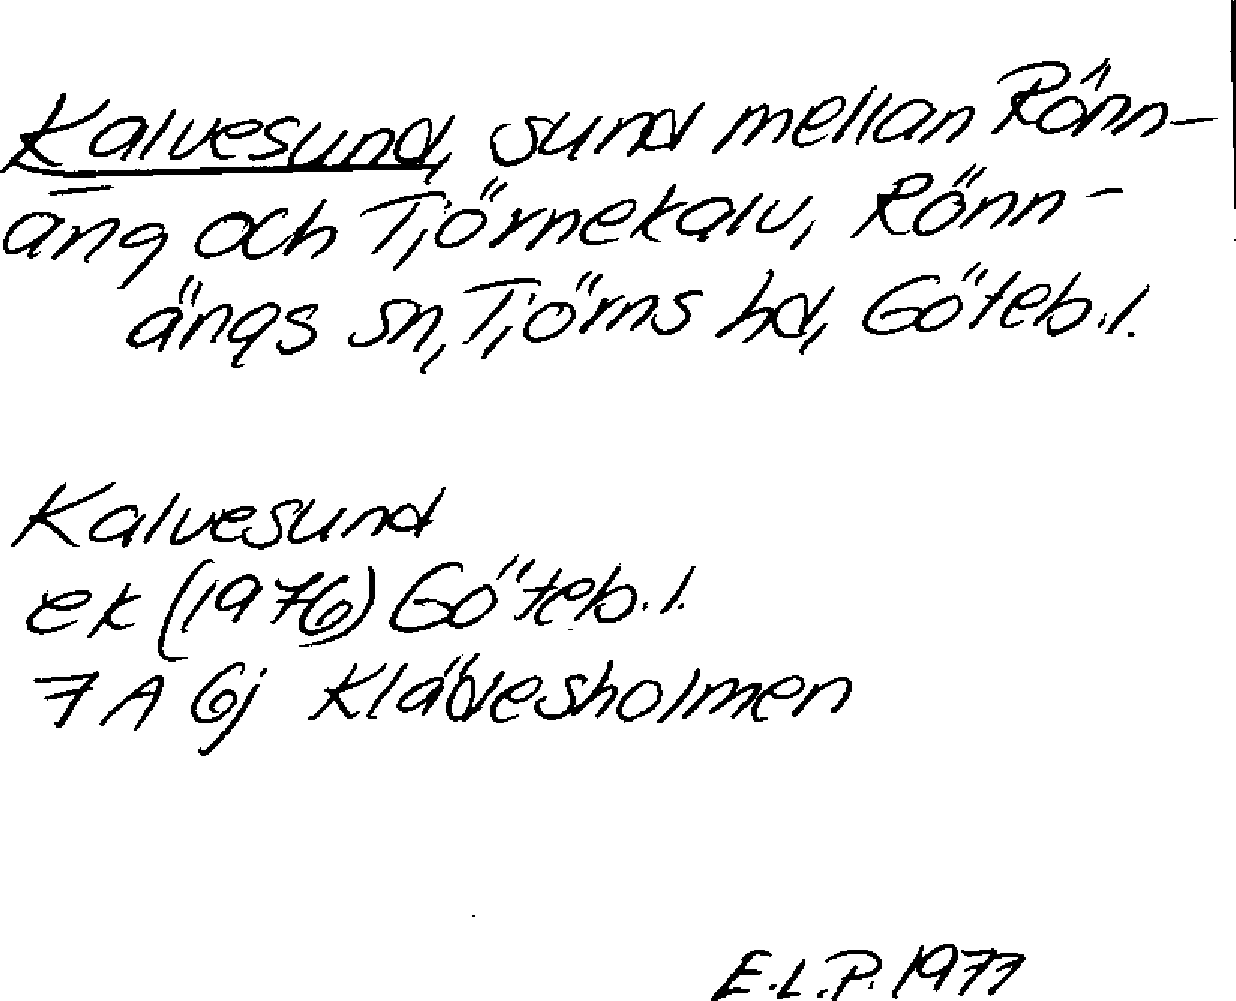 Kalvesund, sund mellan Rönn-
äng och Tjörnekalv, Rönn-
ängs sn, Tjörns hd, Göteb.l.
Kalvesund
ek (1976) Göteb.l.
7 A 6j Klädesholmen
E.L.P. 1977